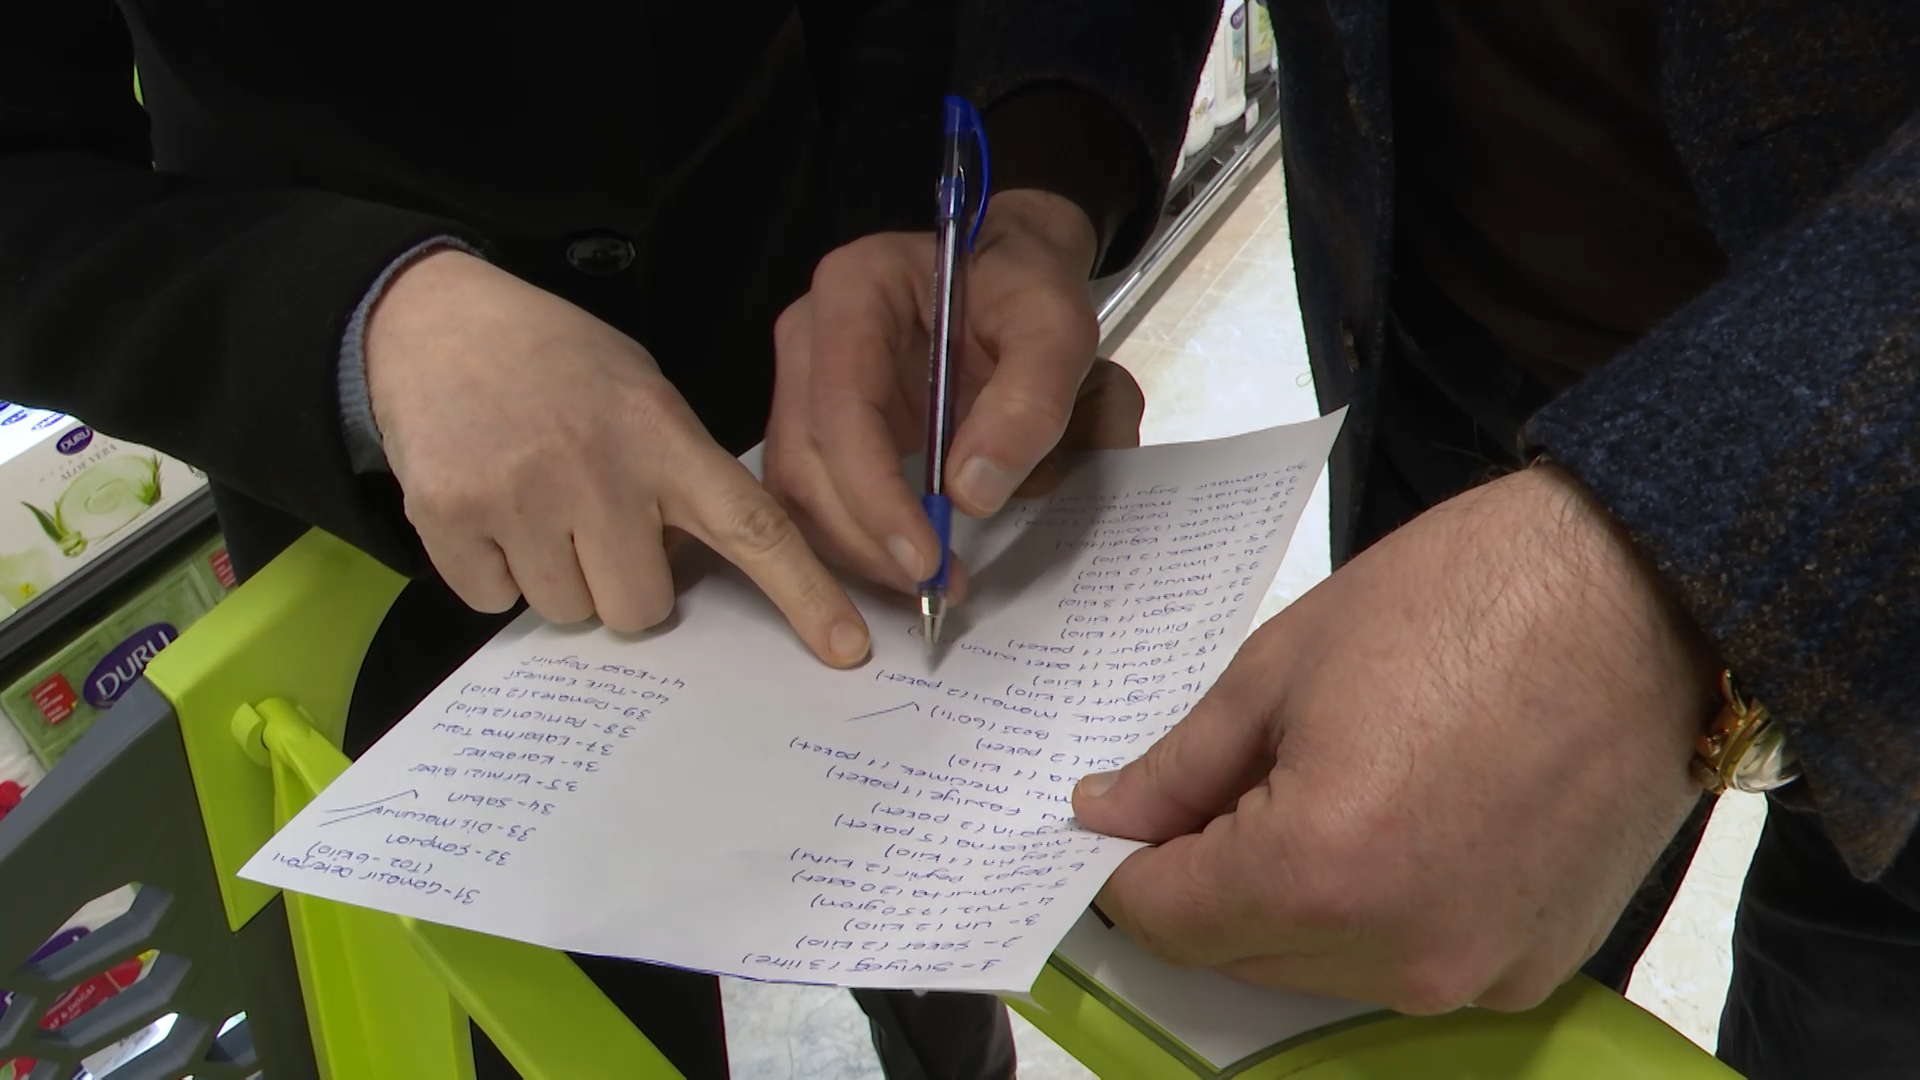 1- Sıvıyağ (3 litre)
2- Şeker (2 kilo)
3- Un (2 kilo)
4- Tuz (750 gram)
5- Yumurta (30 adet)
6- Beyaz Peynir (2 kutu)
7- Zeytin (1 kilo)
makarna (5 paket)
(2 paket)
Fasulye (1 paket)
mercimek (1 paket)
(1 kilo)
Süt (2 paket)
Çocuk Bezi (60'lı)
15- Çocuk Maması (2 paket)
16- Yoğurt (2 kilo)
17- Çay (1 kilo)
18- Tavuk (1 adet bütün
19- Bulgur (1 paket)
20- Pirinç (1 kilo)
21- Soğan (1 kilo)
22- Patates (3 kilo)
23- Havuç (2 kilo)
24- Limon (2 kilo)
25- Kabak (2 kilo)
26- Tuvalet Kağıdı
27- Peçete
28- Bulaşık Deterjanı
29- Bulaşık
30- Çamaşır Suyu
31- Çamaşır Deterjanı
(Toz - 6 kilo)
32- Şampuan
33- Diş macunu
34- Sabun
35- Kırmızı Biber
36- Karabiber
37- Kabartma Tozu
38- Patlıcan (2 kilo)
39- Domates (2 kilo)
40- Türk Kahvesi
41- Kaşar Peyniri
DURU
ALOE VERA
DURU
DURU